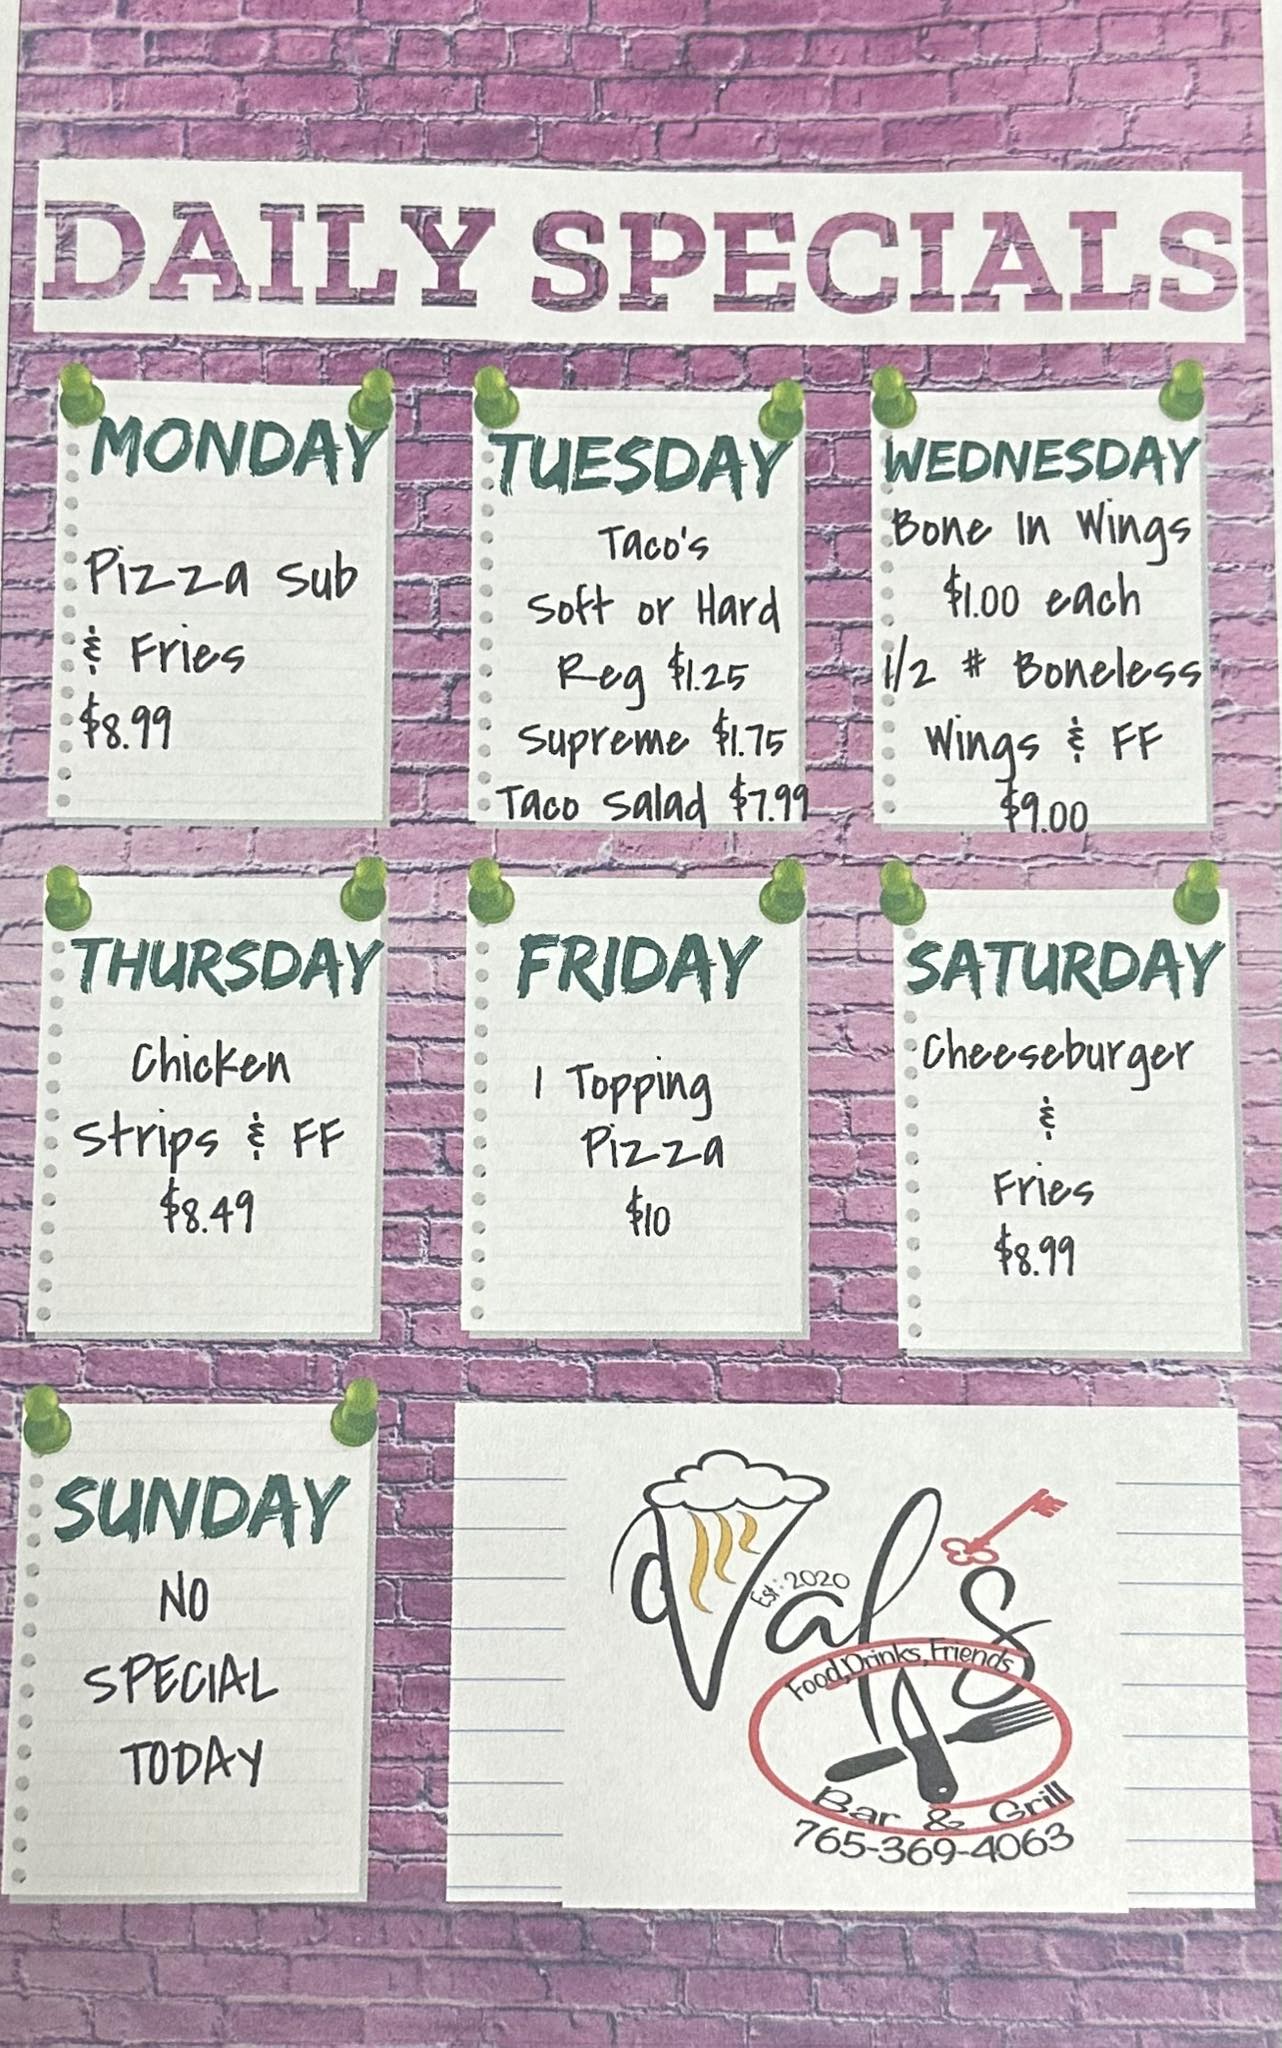 DAILY SPECIALS
MONDAY
Pizza Sub
& Fries
$8.99
TUESDAY
Taco's
Soft or Hard
Reg $1.25
Supreme $1.75
Taco Salad $7.99
WEDNESDAY
Bone In Wings
$1.00 each
1/2 # Boneless
Wings & FF
$9.00
THURSDAY
Chicken
Strips & FF
$8.49
FRIDAY
1 Topping
Pizza
$10
SATURDAY
Cheeseburger
&
Fries
$8.99
SUNDAY
NO
SPECIAL
TODAY
dVals
Est: 2020
Food,Drinks,Friends
Bar & Grill
765-369-4063